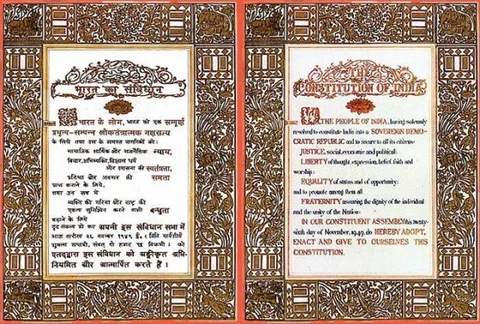 भारत का संविधान
भारत के लोग, भारत को एक सम्पूर्ण
प्रभुत्व-सम्पन्न लोकतंत्रात्मक गणराज्य
के लिये तथा उस के समस्त नागरिकों को:
सामाजिक आर्थिक और राजनैतिक न्याय,
विचार, अभिव्यक्ति, विश्वास धर्म
और उपासना की स्वतंत्रता,
प्रतिष्ठा और अवसर की समता
प्राप्त कराने के लिये,
तथा उन सब में
व्यक्ति की गरिमा और राष्ट्र की
एकता सुनिश्चित करने वाली बन्धुता
बढ़ाने के लिये
दृढ़ संकल्प हो कर अपनी इस संविधान सभा में
आज तारीख २६ नवम्बर १९४९ ई० मिति मार्गशीर्ष
शुक्ला सप्तमी, संवत् दो हजार छ विक्रमी को
एतद्द्वारा इस संविधान को अङ्गीकृत अधि-
नियमित और आत्मार्पित करते हैं।
THE
CONSTITUTION OF INDIA
WE, THE PEOPLE OF INDIA, having solemnly
resolved to constitute India into a SOVEREIGN DEMO-
CRATIC REPUBLIC and to secure to all its citizens:
JUSTICE, social, economic and political;
LIBERTY of thought, expression, belief, faith and
worship;
EQUALITY of status and of opportunity;
and to promote among them all
FRATERNITY assuring the dignity of the individual
and the unity of the Nation;
IN OUR CONSTITUENT ASSEMBLY this twenty-
sixth day of November, 1949, do HEREBY ADOPT,
ENACT AND GIVE TO OURSELVES THIS
CONSTITUTION.